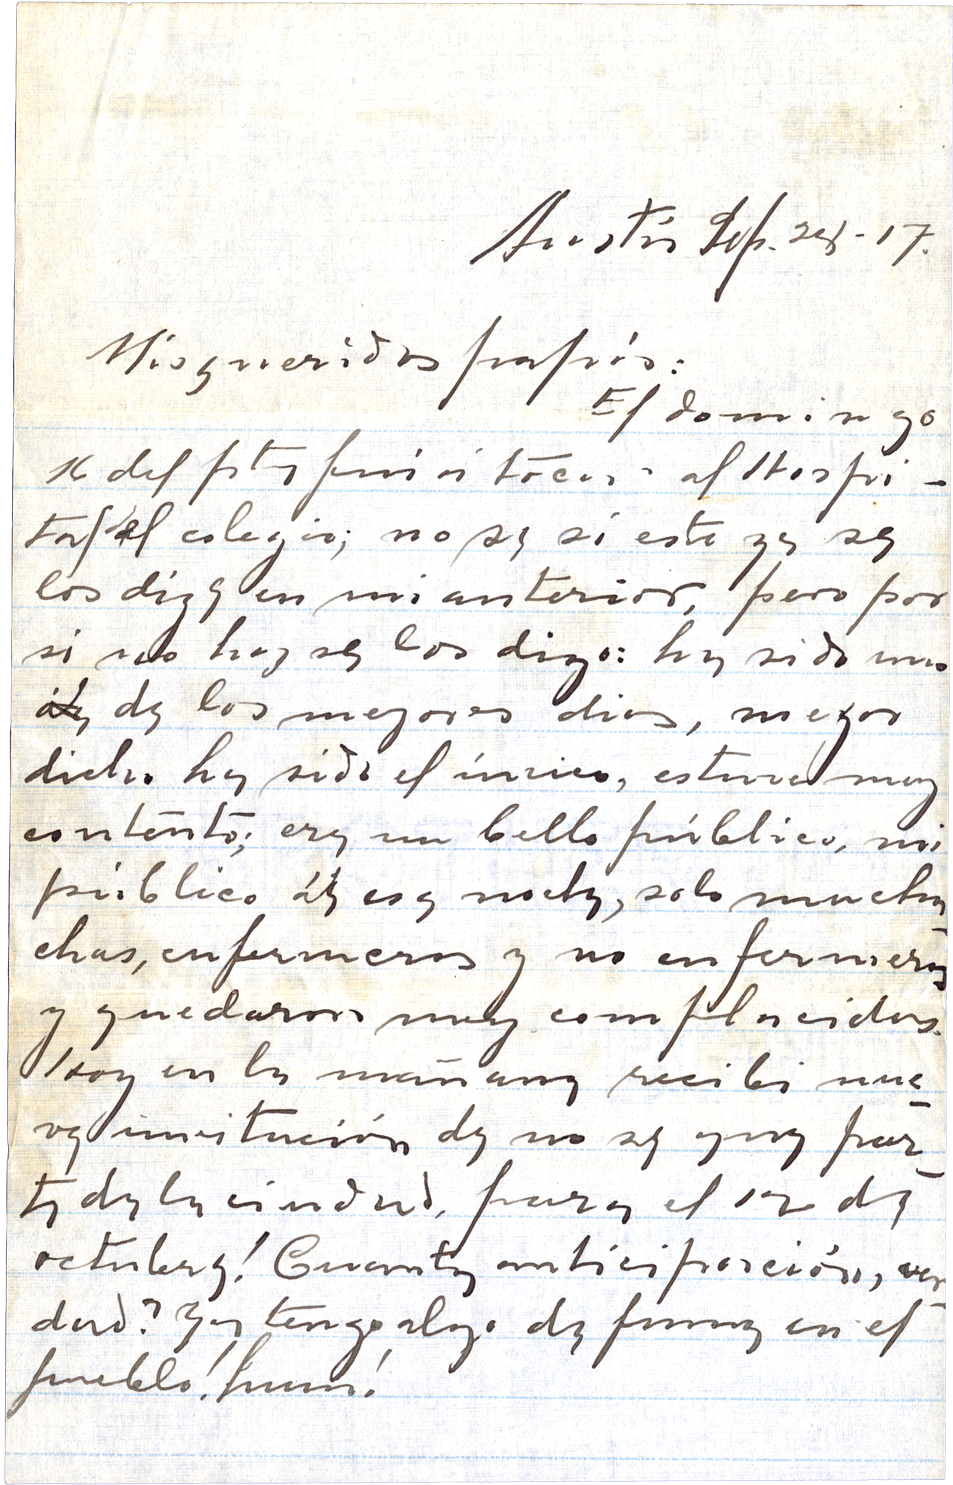 Austin Sep. 24-17.
Mis queridos papás:
El domingo
16 del pte fuí á tocar al Hospi-
tal del colegio; no se si este ya se
los dige en mi anterior, pero por
si no hay se los digo: ha sido uno
de los mejores dias, mejor
dicho ha sido el único, estuve muy
contento; era un bello público, mi
público esa noche, solo mucha
chas, enfermeros y no enfermeras
y quedaron muy complacidos.
Hoy en la mañana recibi nue-
va invitación de no se que par-
te de la ciudad, para el 12 de
octubre! Cuanta anticipación, ver-
dad? Ya tengo algo de fama en el
pueblo! hum!